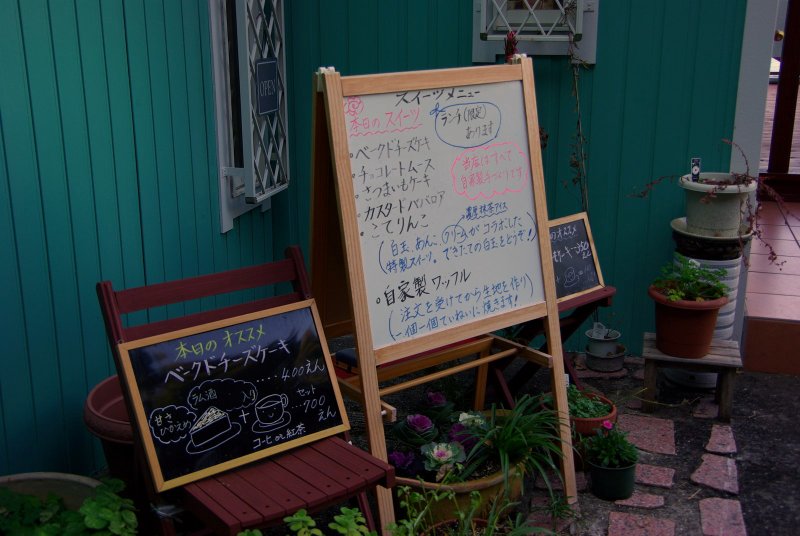 OPEN
スイーツメニュー
本日のスイーツ
ランチ(限定)
あります
・ベークドチーズケーキ
・チョコレートムース
・さつまいもケーキ
・カスタードババロア
・こてりんこ
当店はすべて
自家製手づくりです!
濃厚抹茶アイス
(白玉、あんこ、クリームがコラボした
特製スイーツ。できたての白玉をどうぞ!)
・自家製ワッフル
(注文を受けてから生地を作り
一個一個ていねいに焼きます!)
本日のオススメ
ベークドチーズケーキ
‥‥400えん
ラム酒
入り
甘さ
ひかえめ
+
セット
‥700
えん
コーヒor紅茶
のオススメ
ーキ‥350